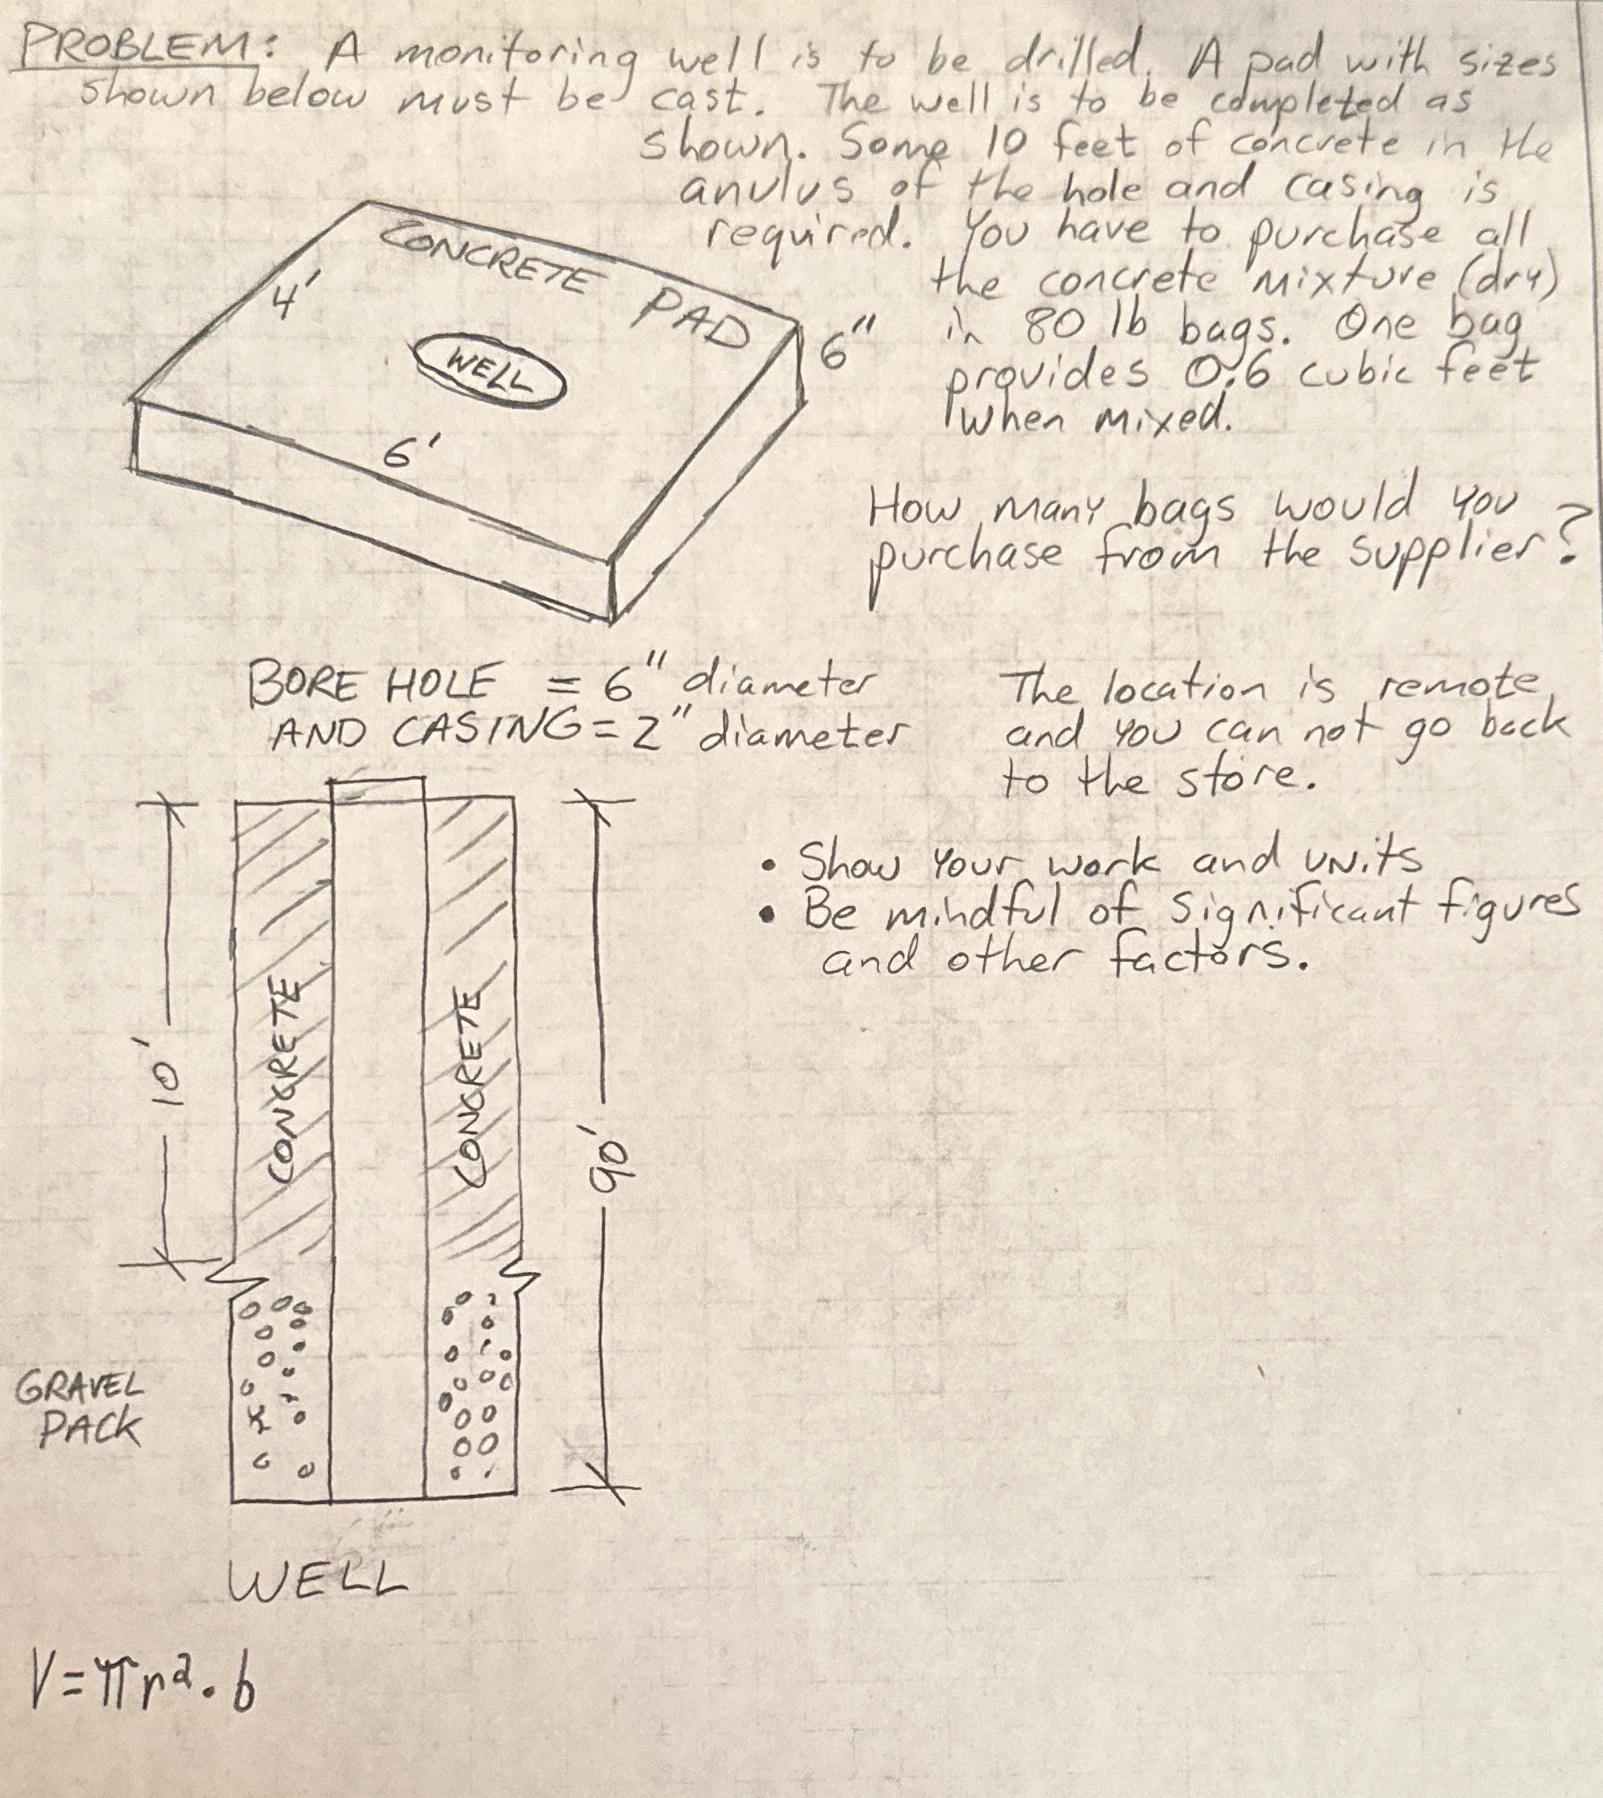 PROBLEM: A monitoring well is to be drilled. A pad with sizes
shown below must be cast. The well is to be completed as
shown. Some 10 feet of concrete in the
anulus of the hole and casing is
required. You have to purchase all
the concrete mixture (dry)
in 80 lb bags. One bag
provides 0.6 cubic feet
when mixed.
CONCRETE PAD
4'
6"
WELL
6'
How many bags would you
purchase from the supplier?
BORE HOLE = 6" diameter
AND CASING = 2" diameter
The location is remote,
and you can not go back
to the store.
• Show your work and units
• Be mindful of significant figures
and other factors.
10'
CONCRETE
CONCRETE
90'
GRAVEL
PACK
WELL
V = πr². b